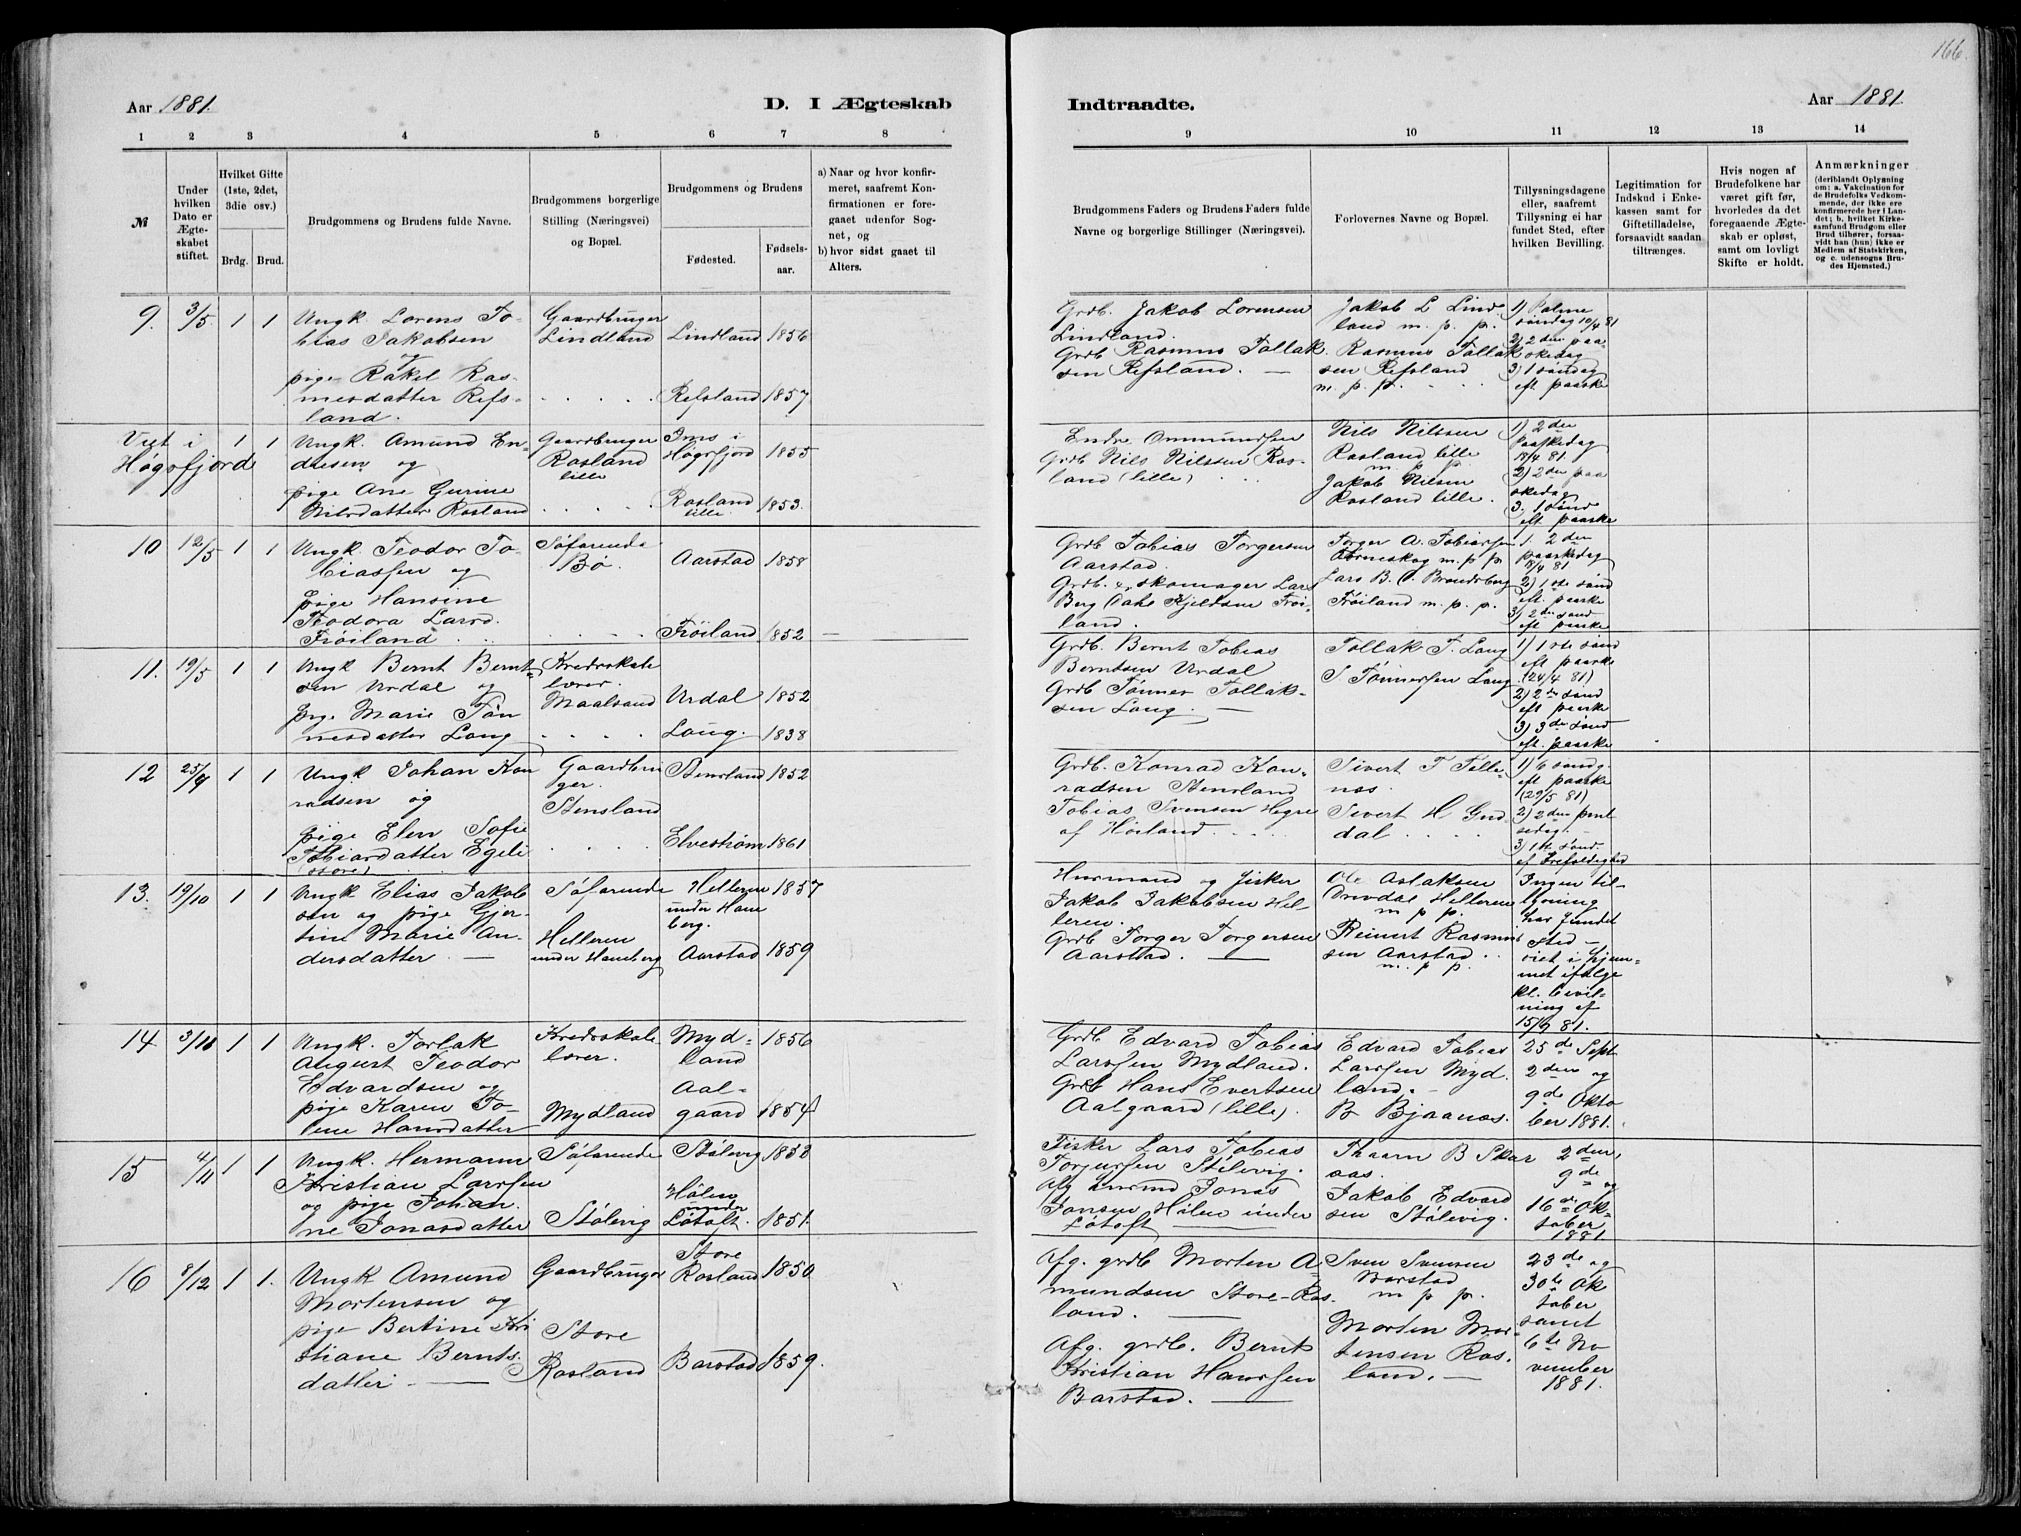 166.
Aar 1881.
D. I Ægteskab
Indtraadte.
Aar 1881.
1 2 3 4 5 6 7 8
9 10 11 12 13 14
№
Under hvilken Dato er Ægteskabet stiftet.
Hvilket Gifte (1ste, 2det, 3die osv.)
Brdg. Brud.
Brudgommens og Brudens fulde Navne.
Brudgommens borgerlige Stilling (Næringsvei) og Bopæl.
Brudgommens og Brudens
Fødested.
Fødselsaar.
a) Naar og hvor konfirmeret, saafremt Konfirmationen er foregaaet udenfor Sognet, og
b) hvor sidst gaaet til Alters.
Brudgommens Faders og Brudens Faders fulde Navne og borgerlige Stillinger (Næringsvei).
Forlovernes Navne og Bopæl.
Tillysningsdagene eller, saafremt Tillysning ei har fundet Sted, efter hvilken Bevilling.
Legitimation for Indskud i Enkekassen samt for Giftetilladelse, forsaavidt saadan tiltrænges.
Hvis nogen af Brudefolkene har været gift før, hvorledes da det foregaaende Ægteskab er opløst, samt om lovligt Skifte er holdt.
Anmærkninger
(deriblandt Oplysning om: a. Vakcination for de Brudefolks Vedkommende, der ikke ere konfirmerede her i Landet; b. hvilket Kirkesamfund Brudgom eller Brud tilhører, forsaavidt han (hun) ikke er Medlem af Statskirken, og c. udensogns Brudes Hjemsted.)
9. 3/5. 1 1
Ungk. Lorens To-
bias Jakobsen
og
pige Rakel Ras-
musdatter Refs-
land.
Gaardbruger
Lindland
Lindland 1856
Refsland 1857
Grdb. Jakob Lorensen
Lindland.
Grdb Rasmus Tollak-
sen Refsland.
Jakob L Lind-
land m. p. p.
Rasmus Tollak
sen Refsland
m. p. p.
1) Palme
søndag 10/4 81
2) 2den paa-
skedag
3) 1 søndag
eft paaske
Viet i
Høgsfjord
1 1
Ungk. Amund En-
dresen og
pige Ane Gurine
Nilsdatter Rosland
Gaardbruger
Rosland
lille
Ims i
Høgsfjord 1855
Rosland
lille 1853.
Endre Ommundsen
Grdb Nils Nilssen Ros-
land (lille)
Nils Nilssen
Rosland lille
m. p. p.
Jakob Nilsen
Rosland lille.
1) 2den
paaskedag
18/4 81.
2) 2den paa
skedag
3. 1 sønd
eft paaske
10 12/5 1 1
Ungk. Teodor To-
biassen og
pige Hansine
Teodora Larsd.
Frøiland
Søfarende
Bø.
Aarstad 1858
Frøiland 1852
Grdb Tobias Torgersen
Aarstad.
Grdb. & skomager Lars
Berg Kjeldsen Frøi-
land.
Torger A. Tobiassen
m. p. p
Lars B.
Frøiland m. p. p.
1. 2den
paaskedag
18/4 81
2) 1ste sønd
eft. paaske
3) 2den sønd
eft paaske
11. 19/5 1 1
Ungk Bernt Bernt-
sen Urdal og
pige Marie Tøn
nesdatter Loug
Kredsskole
lærer.
Maalsund
Urdal 1852
Loug. 1838
Grdb. Bernt Tobias
Berntsen Urdal
Grdb Tønnes Tollak-
sen Loug.
Tollak T. Loug
S Tønnessen Loug
1) 1ste sønd
eft paaske
(24/4 81)
2) 2de sønd
eft paaske
3) 3de sønd
eft. paaske
12 25/9 1 1
Ungk Johan Kon
radsen og
pige Elen Sofie
Tobiasdatter Egeli
(store)
Gaardbru
ger.
Stensland
Stensland 1852
Elvestrøm 1861
Grdb. Konrad Kon-
radsen Stensland
Tobias Svensen Hegre
af Høiland
Sivert T Telle-
nes.
Sivert H Gud
dal
1) 6 søndg.
eft paaske
(29/5 81)
2) 2den pint
sedag.
3) 1te sønd.
ef Trefoldighed
13. 19/10 1 1
Ungk Elias Jakob
sen og pige Gjer-
tine Marie An-
dersdatter
Søfarende
Helleren
under Haneberg
Helleren
under Hane
berg. 1857
Aarstad 1859
Husmand og fisker
Jakob Jakobsen Hel-
leren.
Grdb Torger Torgersen
Aarstad.
Ole Aslaksen
Helleren
m p p.
Reinert Rasmus
sen Aarstad
m. p p.
Ingen til-
lysning
har fundet
sted —
viet i hjem-
met ifølge
kl. bevil-
ning af
15/9 81.
14 3/11 1 1
Ungk. Torlak
August Teodor
Edvardsen og
pige Karen To-
lene Hansdatter
Kredsskole
lærer.
Mydland
Myd-
land 1856
Aal-
gaard 1854
Grdb Edvard Tobias
Larssen Mydland.
Grdb Hans Evertsen
Aalgaard (lille).
Edvard Tobias
Larssen Myd-
land.
B Bjaanæs.
25de Sept
2den og
9de Okto
ber 1881.
15 4/11 1 1
Ungk. Hermann
Kristian Larssen
og pige Johan-
ne Jonasdatter
Søfarende
Stølevig
Stølevig 1858
Hølen
under
Løtoft. 1851.
Fisker Lars Tobias
Torjussen Stølevig.
Afg husmd Jonas
Jonsen Hølen under
Løtoft
Tharn B Skar
aas.
Jakob Edvard
sen Stølevig.
2den,
9de og
16de Ok-
tober
1881
16 8/12 1 1.
Ungk Amund
Mortensen og
pige Bertine Kri
stiane Bernts-
datter
Gaardbruger
Store
Rosland
Store
Rosland 1850
Barstad 1859.
Afg. grdb Morten A-
mundsen Store-Ros-
land.
Afg. grdb. Bernt
Kristian Hanssen
Barstad.
Sven Svensen
Barstad
m p p.
Morten Mor-
tensen Ros-
land.
23de og
30te Ok
tober
samt
6te No
vember
1881.